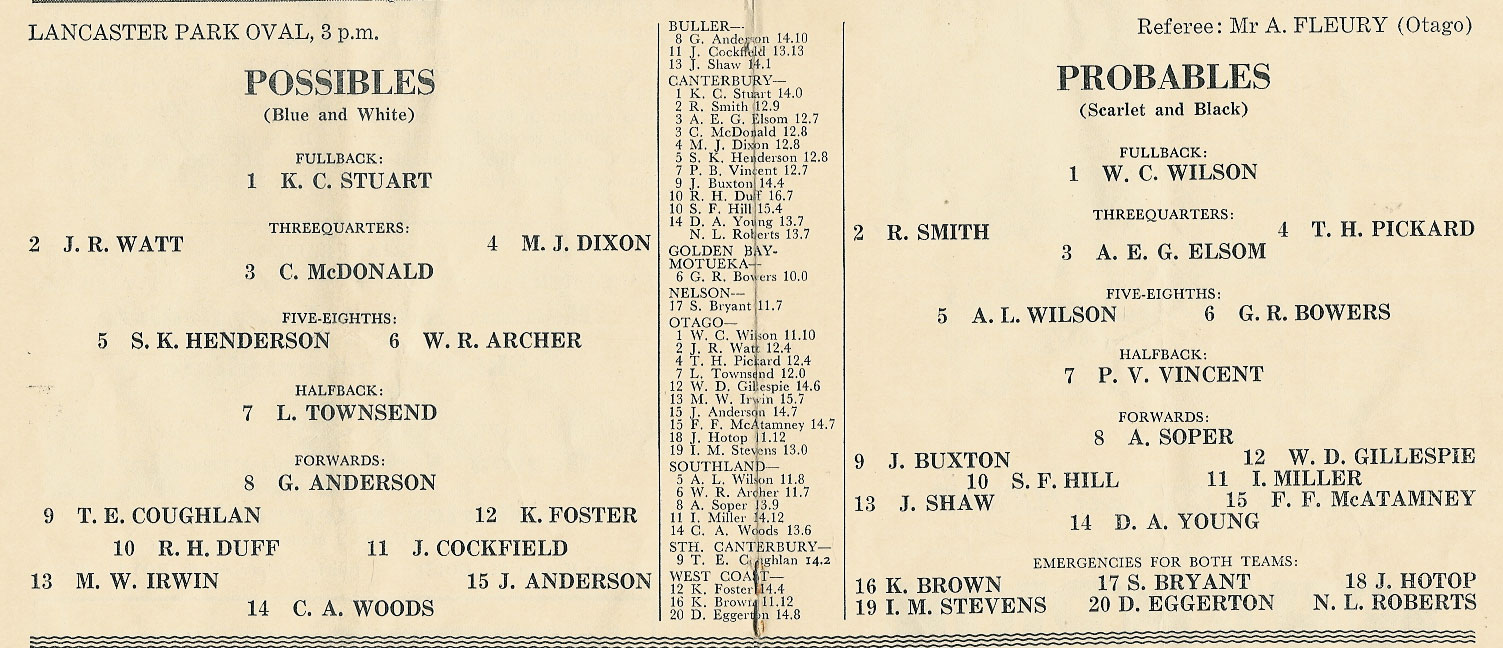 LANCASTER PARK OVAL, 3 p.m.
POSSIBLES
(Blue and White)
FULLBACK:
1 K. C. STUART
THREEQUARTERS:
2 J. R. WATT 4 M. J. DIXON
3 C. McDONALD
FIVE-EIGHTHS:
5 S. K. HENDERSON 6 W. R. ARCHER
HALFBACK:
7 L. TOWNSEND
FORWARDS:
8 G. ANDERSON
9 T. E. COUGHLAN 12 K. FOSTER
10 R. H. DUFF 11 J. COCKFIELD
13 M. W. IRWIN 15 J. ANDERSON
14 C. A. WOODS
BULLER—
8 G. Anderson 14.10
11 J. Cockfield 13.13
13 J. Shaw 14.1
CANTERBURY—
1 K. C. Stuart 14.0
2 R. Smith 12.9
3 A. E. G. Elsom 12.7
3 C. McDonald 12.8
4 M. J. Dixon 12.8
5 S. K. Henderson 12.8
7 P. B. Vincent 12.7
9 J. Buxton 14.4
10 R. H. Duff 16.7
10 S. F. Hill 15.4
14 D. A. Young 13.7
N. L. Roberts 13.7
GOLDEN BAY-
MOTUEKA—
6 G. R. Bowers 10.0
NELSON—
17 S. Bryant 11.7
OTAGO—
1 W. C. Wilson 11.10
2 J. R. Watt 12.4
4 T. H. Pickard 12.4
7 L. Townsend 12.0
12 W. D. Gillespie 14.6
13 M. W. Irwin 15.7
15 J. Anderson 14.7
15 F. F. McAtamney 14.7
18 J. Hotop 11.12
19 I. M. Stevens 13.0
SOUTHLAND—
5 A. L. Wilson 11.8
6 W. R. Archer 11.7
8 A. Soper 13.9
11 I. Miller 14.12
14 C. A. Woods 13.6
STH. CANTERBURY—
9 T. E. Coughlan 14.2
WEST COAST—
12 K. Foster 14.4
16 K. Brown 11.12
20 D. Eggerton 14.8
Referee: Mr A. FLEURY (Otago)
PROBABLES
(Scarlet and Black)
FULLBACK:
1 W. C. WILSON
THREEQUARTERS:
2 R. SMITH 4 T. H. PICKARD
3 A. E. G. ELSOM
FIVE-EIGHTHS:
5 A. L. WILSON 6 G. R. BOWERS
HALFBACK:
7 P. V. VINCENT
FORWARDS:
8 A. SOPER
9 J. BUXTON 12 W. D. GILLESPIE
10 S. F. HILL 11 I. MILLER
13 J. SHAW 15 F. F. McATAMNEY
14 D. A. YOUNG
EMERGENCIES FOR BOTH TEAMS:
16 K. BROWN 17 S. BRYANT 18 J. HOTOP
19 I. M. STEVENS 20 D. EGGERTON N. L. ROBERTS